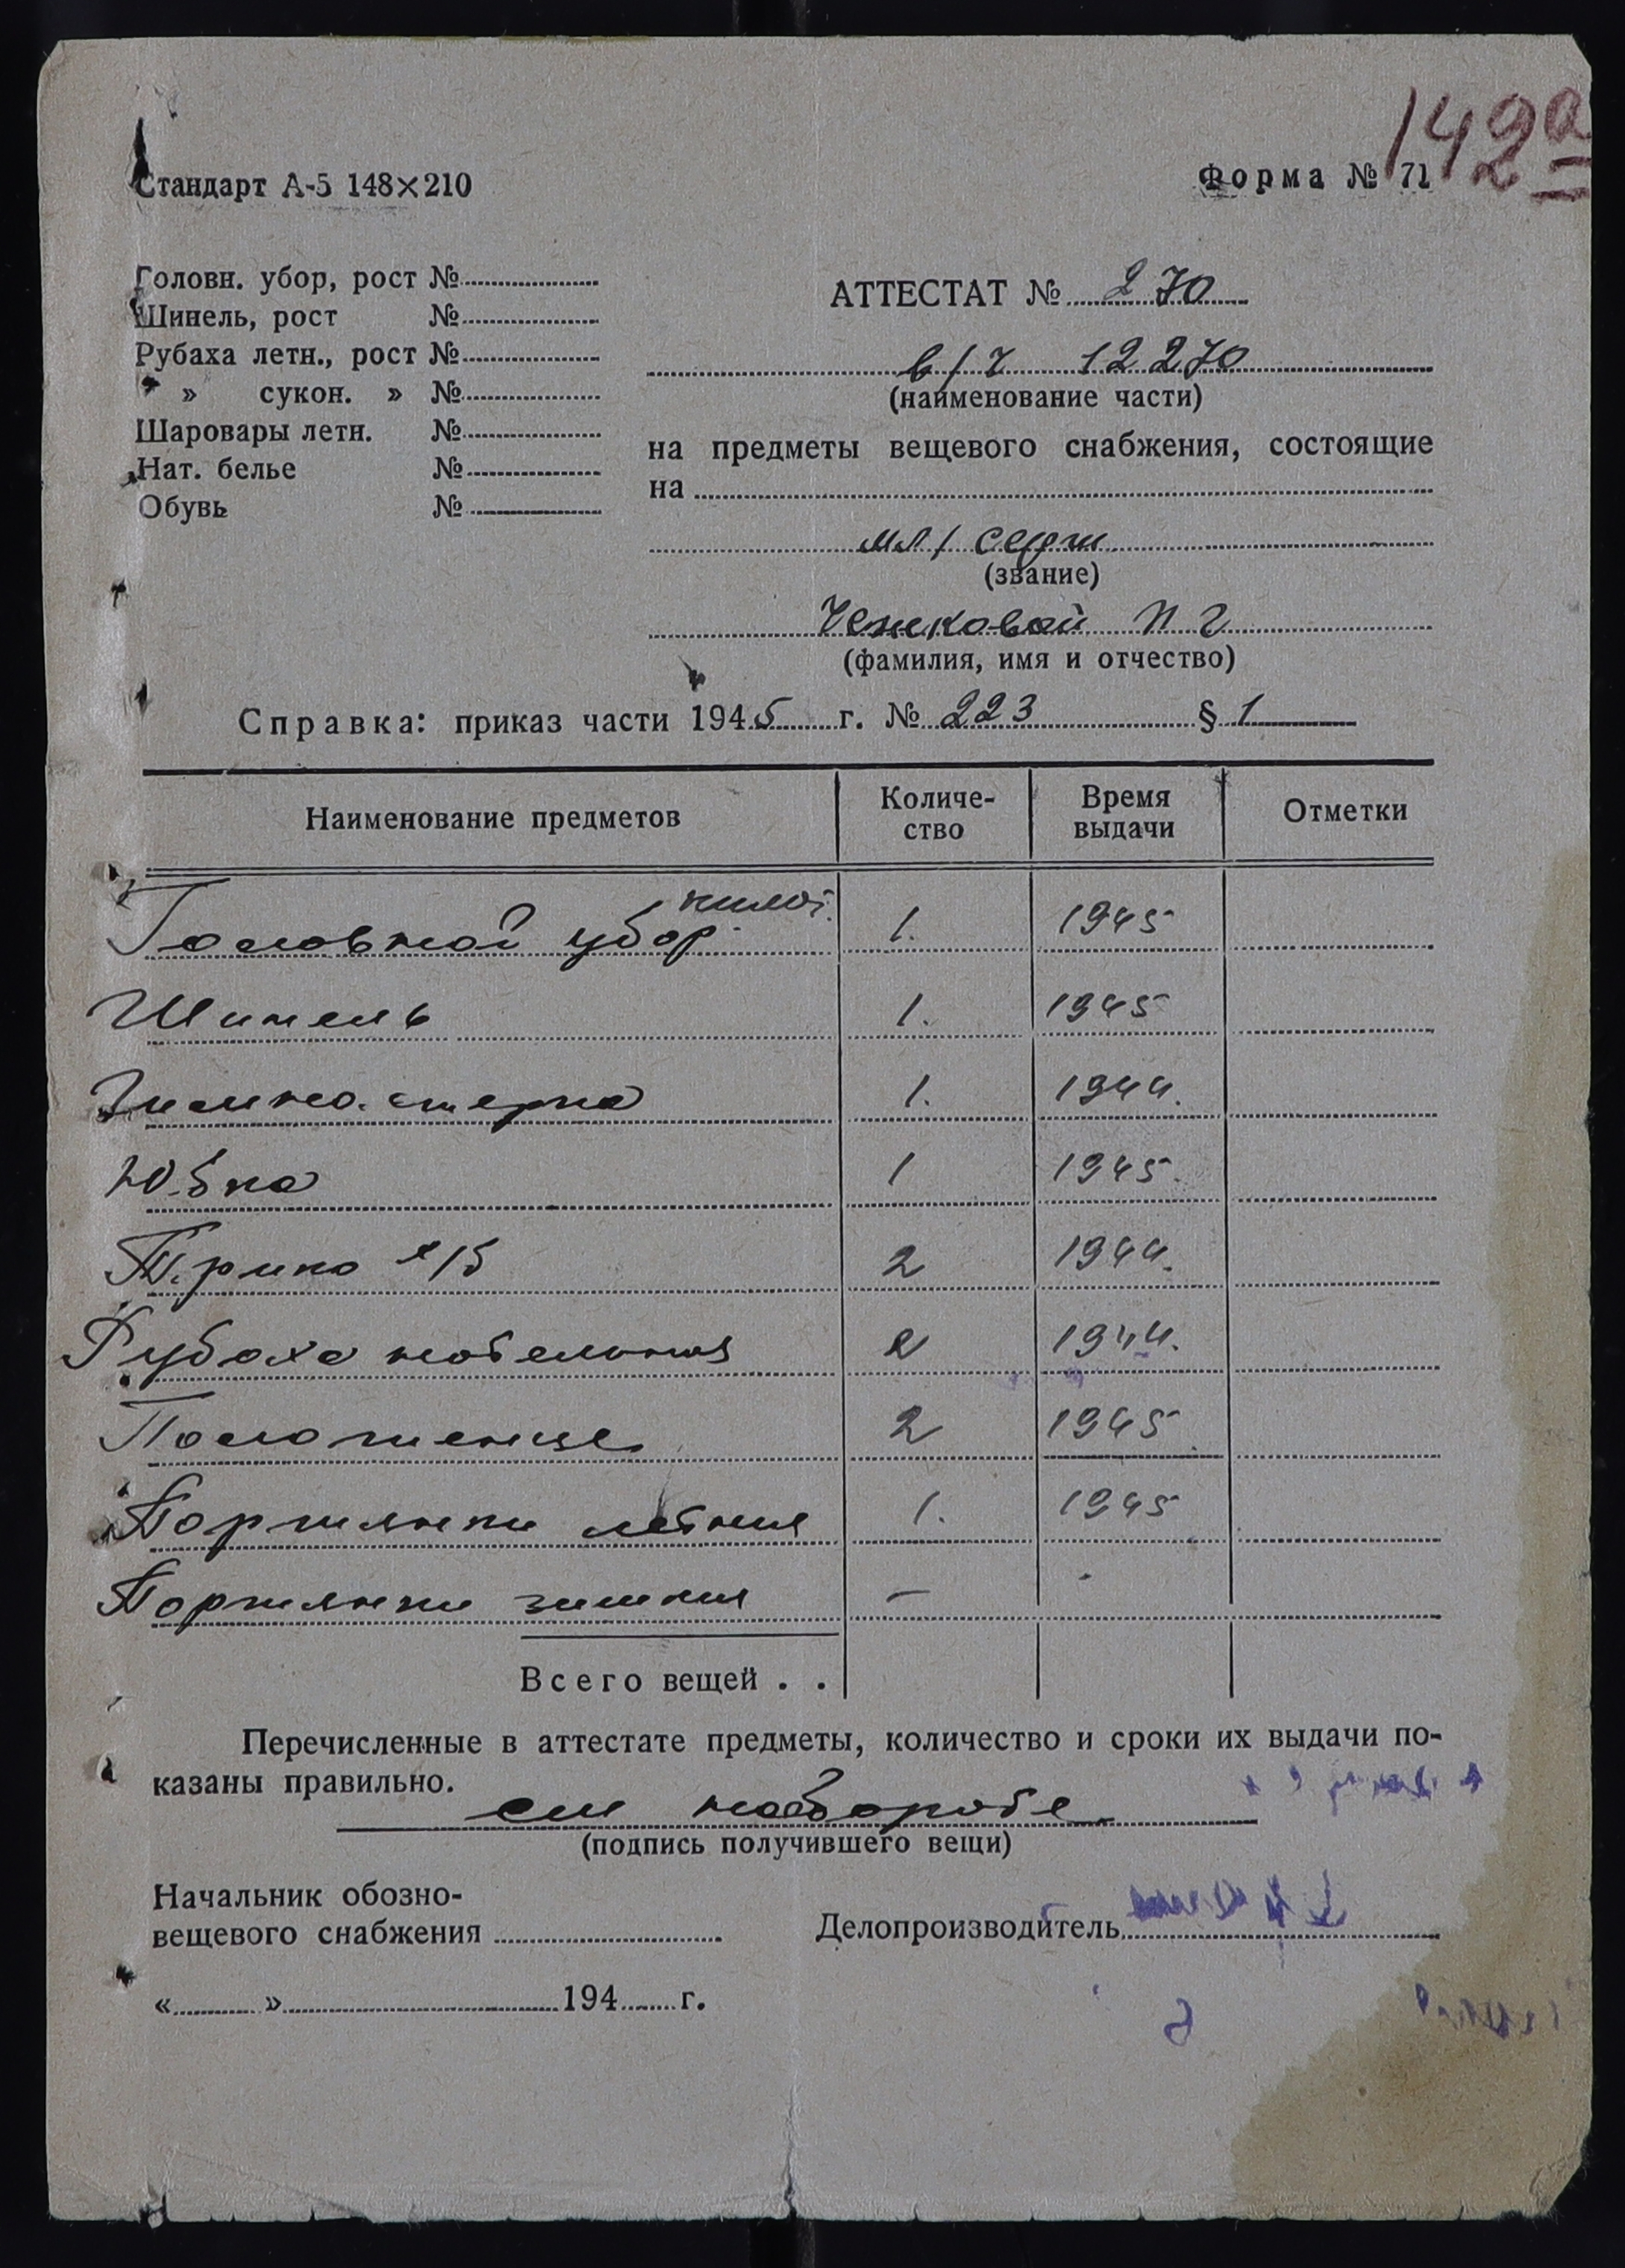 142а
Стандарт А-5 148×210
Форма № 71
Головн. убор, рост №
Шинель, рост №
Рубаха летн., рост №
» » сукон. » №
Шаровары летн. №
Нат. белье №
Обувь №
АТТЕСТАТ № 270
в/ч 12270
(наименование части)
на предметы вещевого снабжения, состоящие
на
мл/ серж
(звание)
П Г
(фамилия, имя и отчество)
Справка: приказ части 1945 г. № 223 § 1
Наименование предметов Количе- Время Отметки
ство выдачи
Головной убор 1. 1945
Шинель 1. 1945
Гимнастерка 1. 1944.
Юбка 1 1945.
Трико х/б 2 1944.
Рубаха нательная 2 1944.
Полотенце 2 1945.
Портянки летния 1. 1945
Портянки зимния –
Всего вещей . .
Перечисленные в аттестате предметы, количество и сроки их выдачи по-
казаны правильно.
см на обороте
(подпись получившего вещи)
Начальник обозно-
вещевого снабжения
Делопроизводитель
« » 194 г.